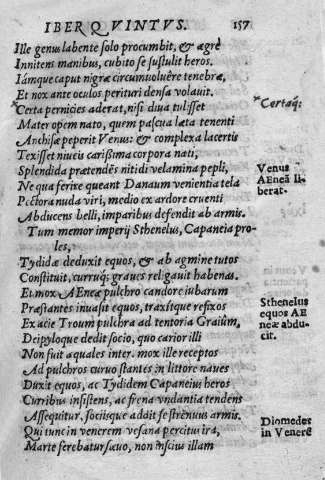 IBER QVINTVS. 157
Ille genus labente solo procumbit, & ægrè
Innitens manibus, cubito se sustulit heros.
Iámque caput nigræ circumuoluêre tenebræ,
Et nox ante oculos perituri densa volauit.
*Certa pernicies aderat, nisi diua tulisset
*Certaq;
Mater opem nato, quem pascua læta tenenti
Anchisæ peperit Venus: & complexa lacertis
Texisset niueis carißima corpora nati,
Splendida prætendēs nitidi velamina pepli,
Venus
Ne qua ferire queant Danaum venientia tela
AEneā li
Pectora nuda viri, medio ex ardore cruenti
berat.
Abducens belli, imparibus defendit ab armis.
Tum memor imperij Sthenelus, Capaneia pro-
les,
Tydidæ deduxit equos, & ab agmine tutos
Constituit, curruq; graues religauit habenas.
Et mox AEneæ pulchro candore iubarum
Præstantes inuasit equos, traxítque refixos
Sthenelus
Ex acie Troum pulchra ad tentoria Graiûm,
equos AE
Deipyloque dedit socio, quo carior illi
neæ abdu
Non fuit æquales inter. mox ille receptos
cit.
Ad pulchros curuo stantes in littore naues
Duxit equos, ac Tydidem Capaneius heros
Curribus insistens, ac frena vndantia tendens
Assequitur, sociísque addit se strēnuus armis.
Diomedes
Qui tunc in venerem vesana percitus ira,
in Venerē
Marte ferebatur sæuo, non inscius illam